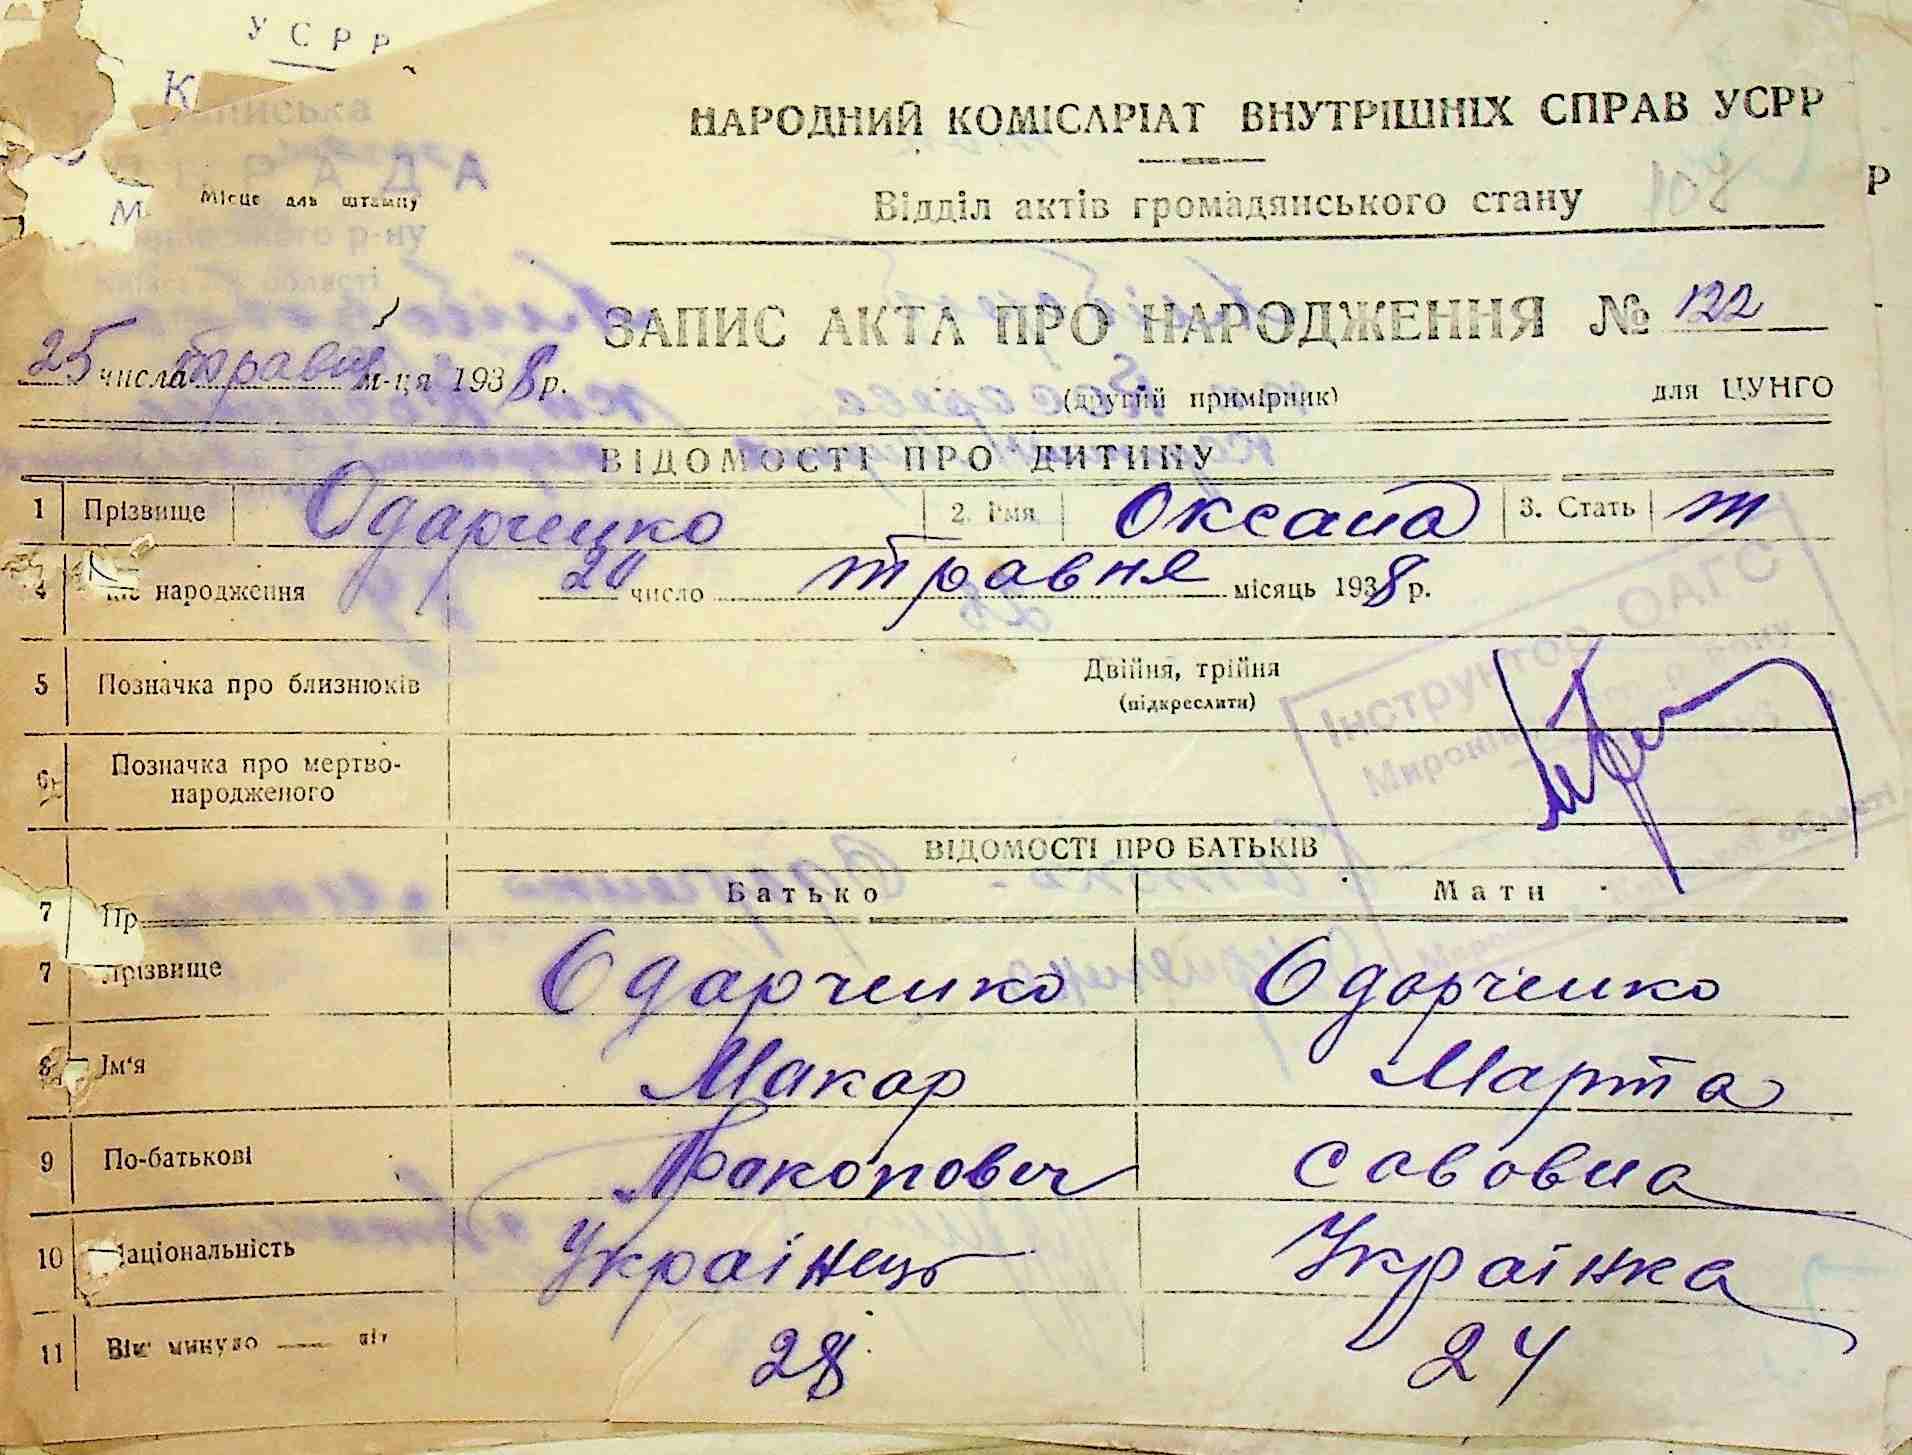 У С Р Р
НАРОДНИЙ КОМІСАРІАТ ВНУТРІШНІХ СПРАВ УСРР
Місце для штампу
Відділ актів громадянського стану
108
Р
р-ну
області
ЗАПИС АКТА ПРО НАРОДЖЕННЯ № 122
25 числа травня м-ця 1938 р.
(другий примірник) для ЦУНГО
ВІДОМОСТІ ПРО ДИТИНУ
1 Прізвище Одарченко 2. Імя Оксана 3. Стать ж
4 народження 20 число травня місяць 1938 р.
5 Позначка про близнюків Двійня, трійня
(підкреслити)
6 Позначка про мертво-
народженого
Інструктор ОАГС
ВІДОМОСТІ ПРО БАТЬКІВ
Батько Мати
7 Пр
7 Прізвище Одарченко Одарченко
8 Ім'я Макар Марта
9 По-батькові Прокопович Савовна
10 Національність Українець Українка
11 Вік минуло — літ 28 24